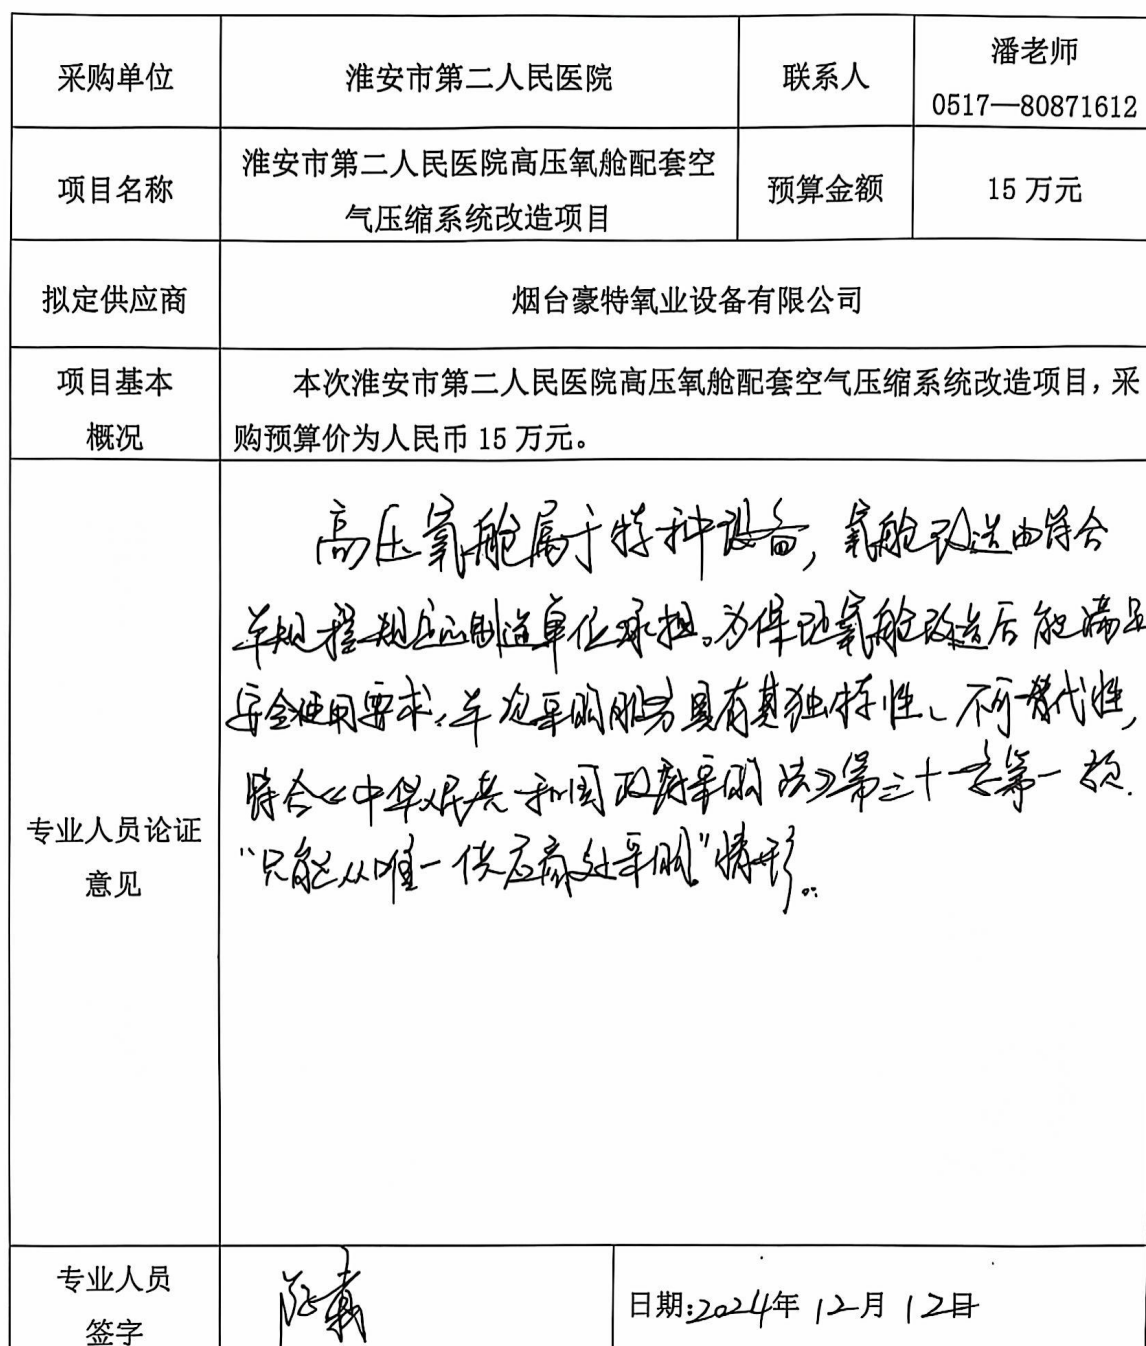 采购单位
淮安市第二人民医院
联系人
潘老师
0517—80871612
项目名称
淮安市第二人民医院高压氧舱配套空
气压缩系统改造项目
预算金额
15 万元
拟定供应商
烟台豪特氧业设备有限公司
项目基本
概况
本次淮安市第二人民医院高压氧舱配套空气压缩系统改造项目，采
购预算价为人民币 15 万元。
专业人员论证
意见
高压氧舱属于特种设备，氧舱改造由符合
本规程规定的制造单位承担。为保证氧舱改造后能满足
安全使用要求，本次采购服务具有其独特性、不可替代性，
符合《中华人民共和国政府采购法》第三十一条第一款
“只能从唯一供应商处采购”情形。
专业人员
签字
日期:2024年12月12日